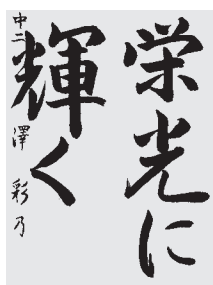 栄光に
輝く
中二 澤 彩乃